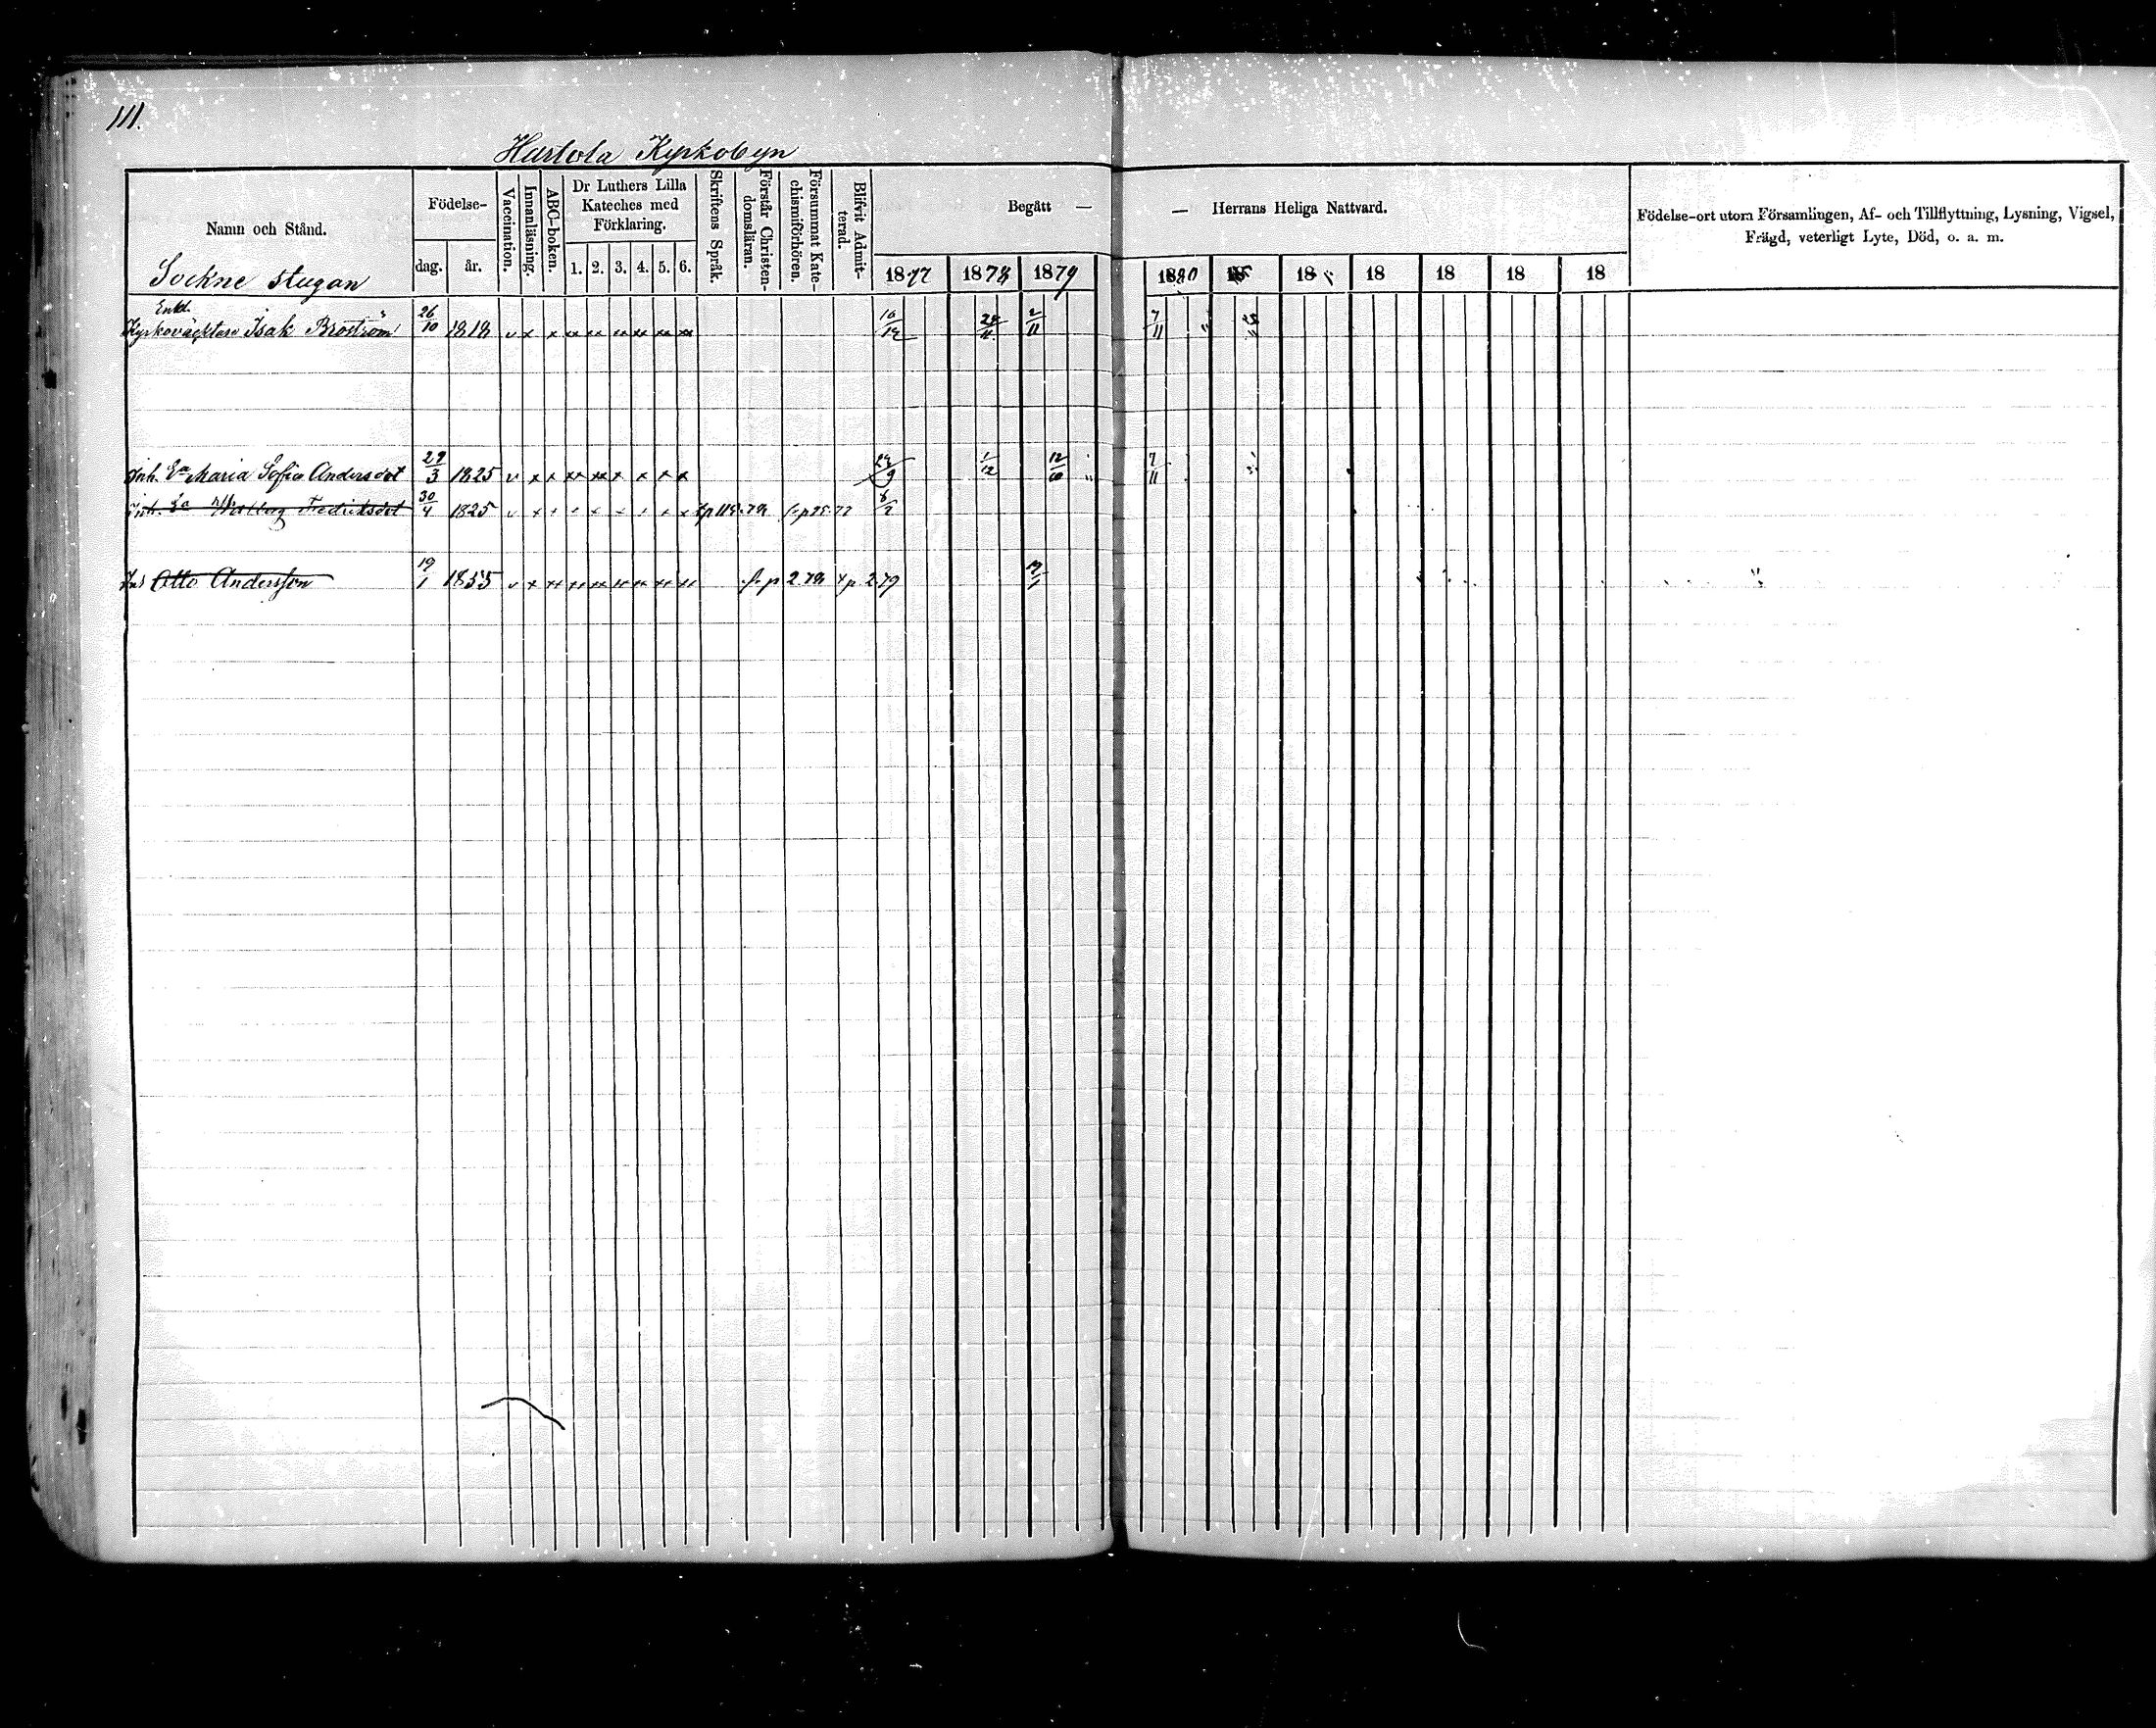 111.
Hartola Kyrkobyn
Namn och Stånd.
Födelse-
dag. år.
Vaccination.
Innanläsning.
ABC-boken.
Dr Luthers Lilla
Kateches med
Förklaring.
1. 2. 3. 4. 5. 6.
Skriftens Språk.
Förstår Christen-
domsläran.
Försummat Kate-
chismiförhören.
Blifvit Admit-
terad.
Begått —
— Herrans Heliga Nattvard.
1877 1878 1879 1880 18 18 18 18 18 18
Födelse-ort utom Församlingen, Af- och Tillflyttning, Lysning, Vigsel,
Frägd, veterligt Lyte, Död, o. a. m.
Sockne stugan
Enkl.
Kyrkoväktare Isak Broström 26/10 1818 v x x xx xx xx xx xx xx 2/11 7/11
Inh. Ea Maria Sofia Andersdot 29/3 1825 v x x xx xx x x x x 1/12 12/10 7/11
Inh. Ea Fredriksdot 30/4 1825 v x
Otto Andersson 19/1 1855 v x xx xx xx xx xx xx xx p 2.78 p. 2.79